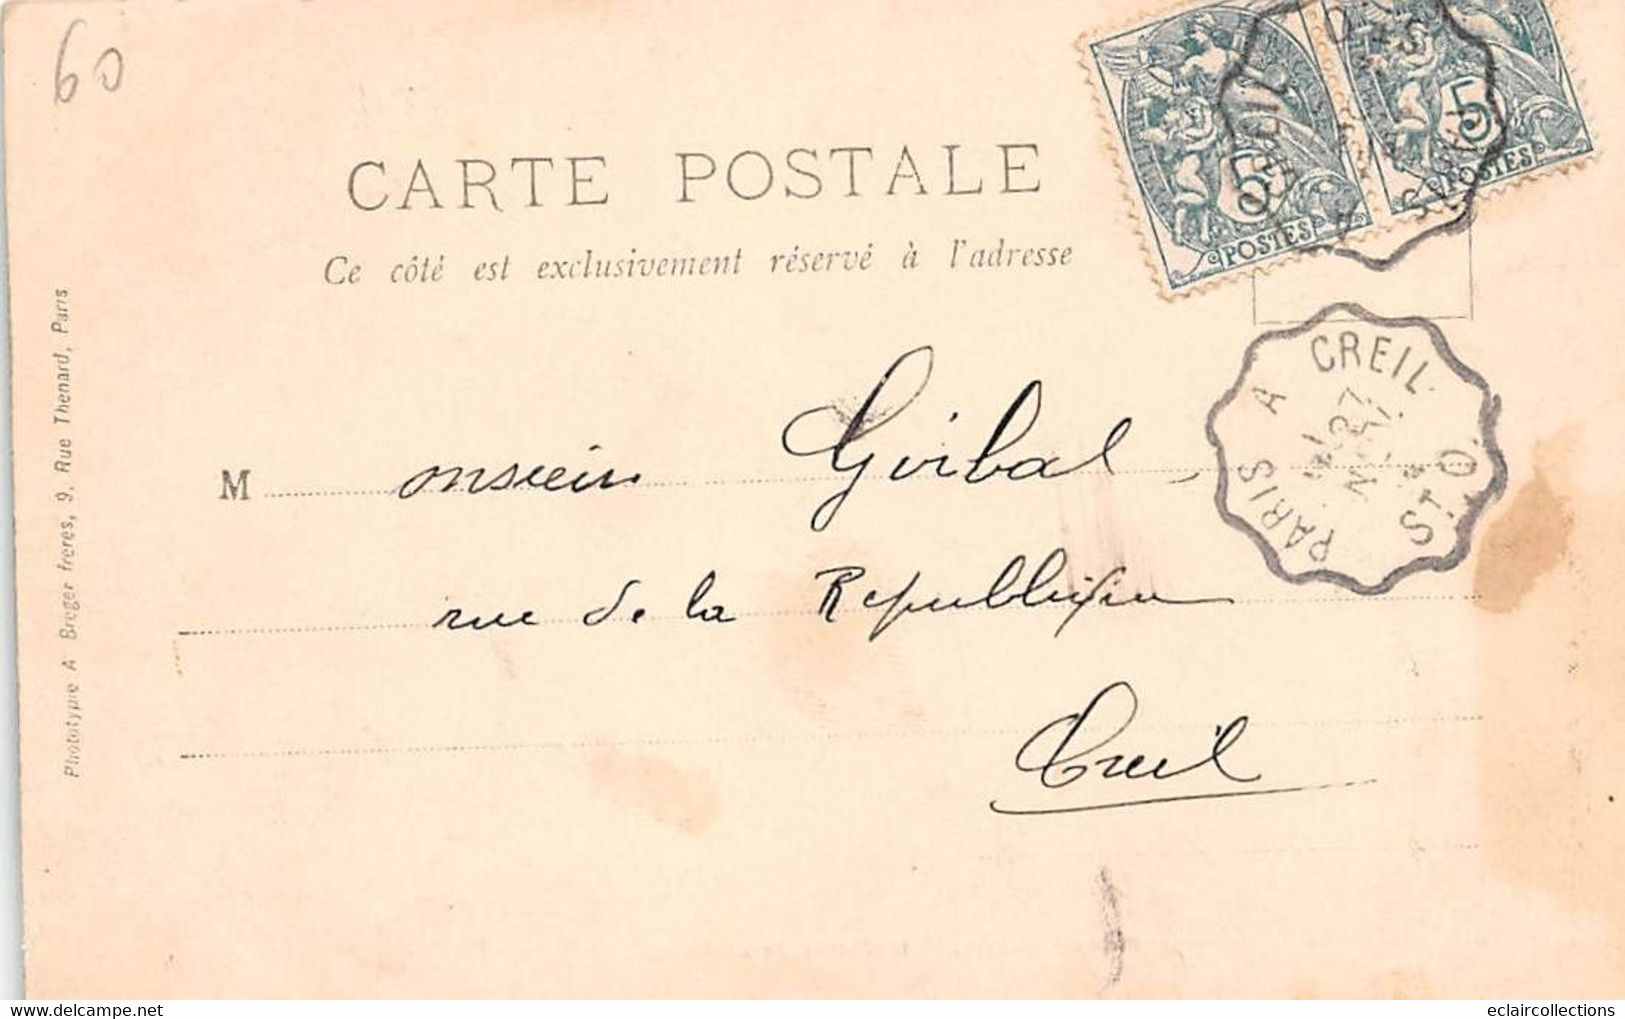 60
CARTE POSTALE
Ce côté est exclusivement réservé à l'adresse
5
POSTES
5
POSTES
PARIS A CREIL ST. O.
27
Monsieur Goibal
rue de la Republique
Creil
Phototypie A Breger freres, 9, Rue Thenard, Paris
eclaircollections